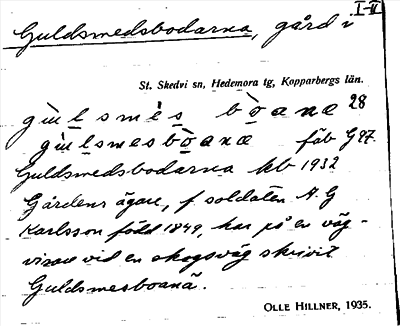 Guldsmedsbodarna, gård i I-II
St. Skedvi sn, Hedemora tg, Kopparbergs län.
gùl̲smès bò̲anæ 28
gùl̲smesbò̲anæ fäb G 87.
Guldsmedsbodarna kb 1932
Gårdens ägare, f. soldaten A. G
Karlsson född 1849, har på en väg-
visare vid en skogsväg skrivit
Guldsmesboanä.
OLLE HILLNER, 1935.